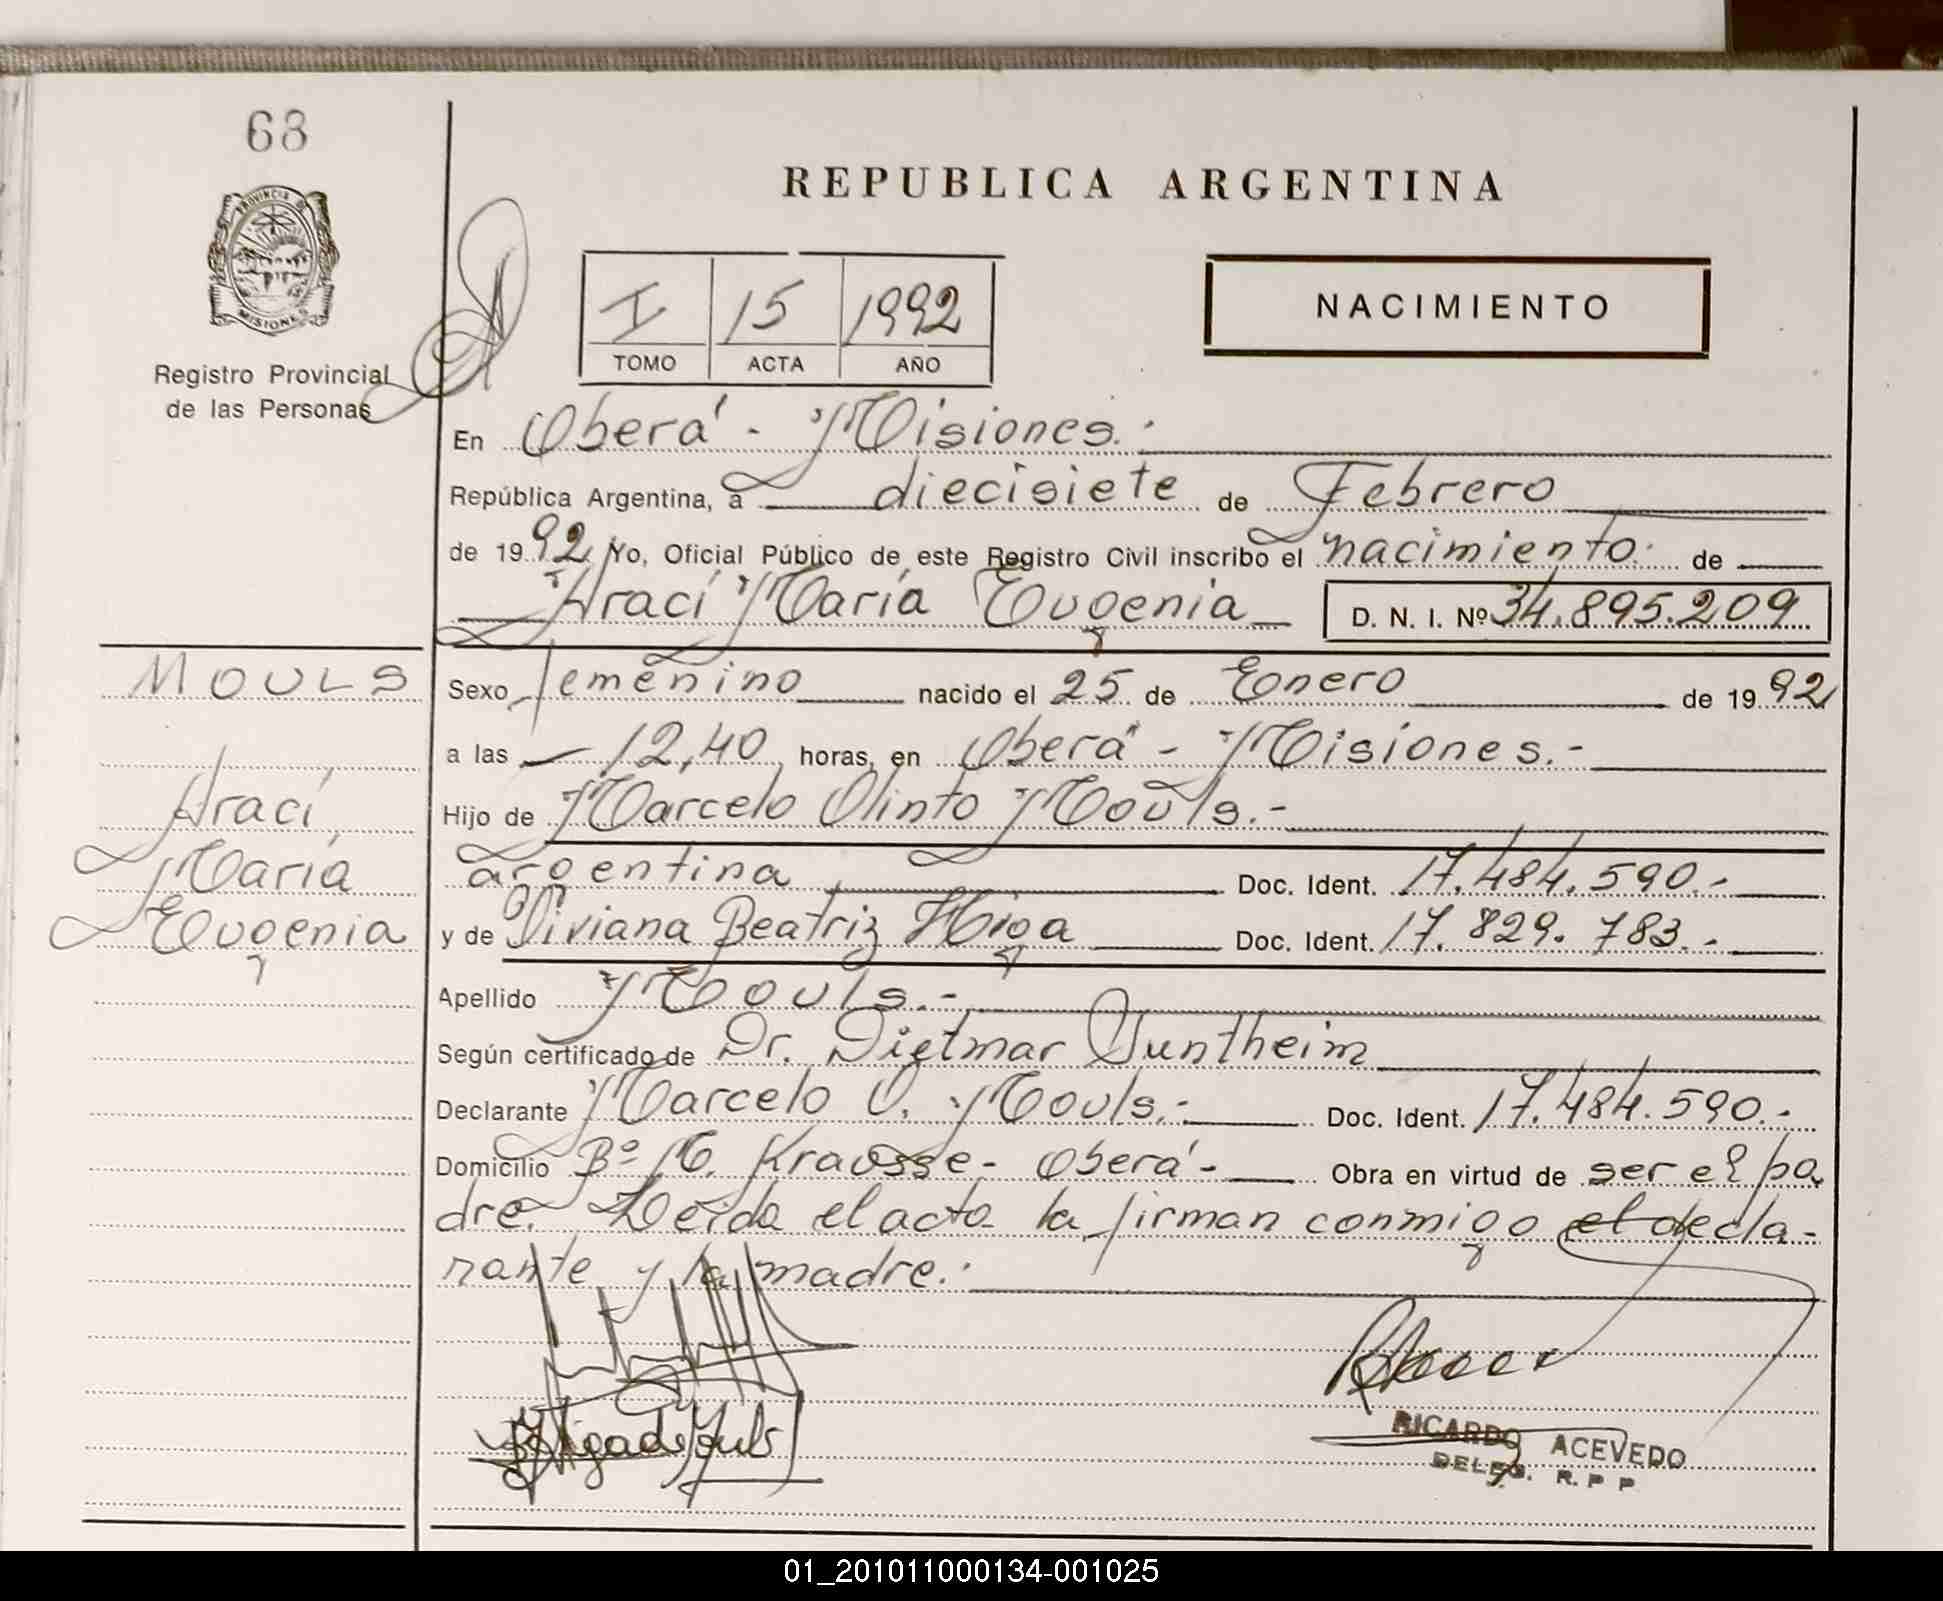 68
REPUBLICA ARGENTINA
PROVINCIA D
MISIONES
Registro Provincial
de las Personas
I 15 1992
TOMO ACTA AÑO
NACIMIENTO
En Oberá - Misiones.-
República Argentina, a diecisiete de Febrero
de 1992 Yo, Oficial Público de este Registro Civil inscribo el nacimiento. de
Arací María Eugenia D. N. I. Nº 34.895.209
MOULS
Arací
María
Eugenia
Sexo femenino nacido el 25 de Enero de 1992
a las 12,40 horas, en Oberá - Misiones.-
Hijo de Marcelo Olinto Mouls.-
argentina Doc. Ident. 17.484.590.-
y de Viviana Beatriz Higa Doc. Ident. 17.829.783.-
Apellido Mouls.-
Según certificado de Dr. Dietmar Suntheim
Declarante Marcelo O. Mouls.- Doc. Ident. 17.484.590.-
Domicilio Bº M. Krausse- Oberá- Obra en virtud de ser el pa
dre. Leída el acta la firman conmigo el decla-
rante y la madre.-
RICARDO ACEVEDO
DELEG. R. P P
01_201011000134-001025